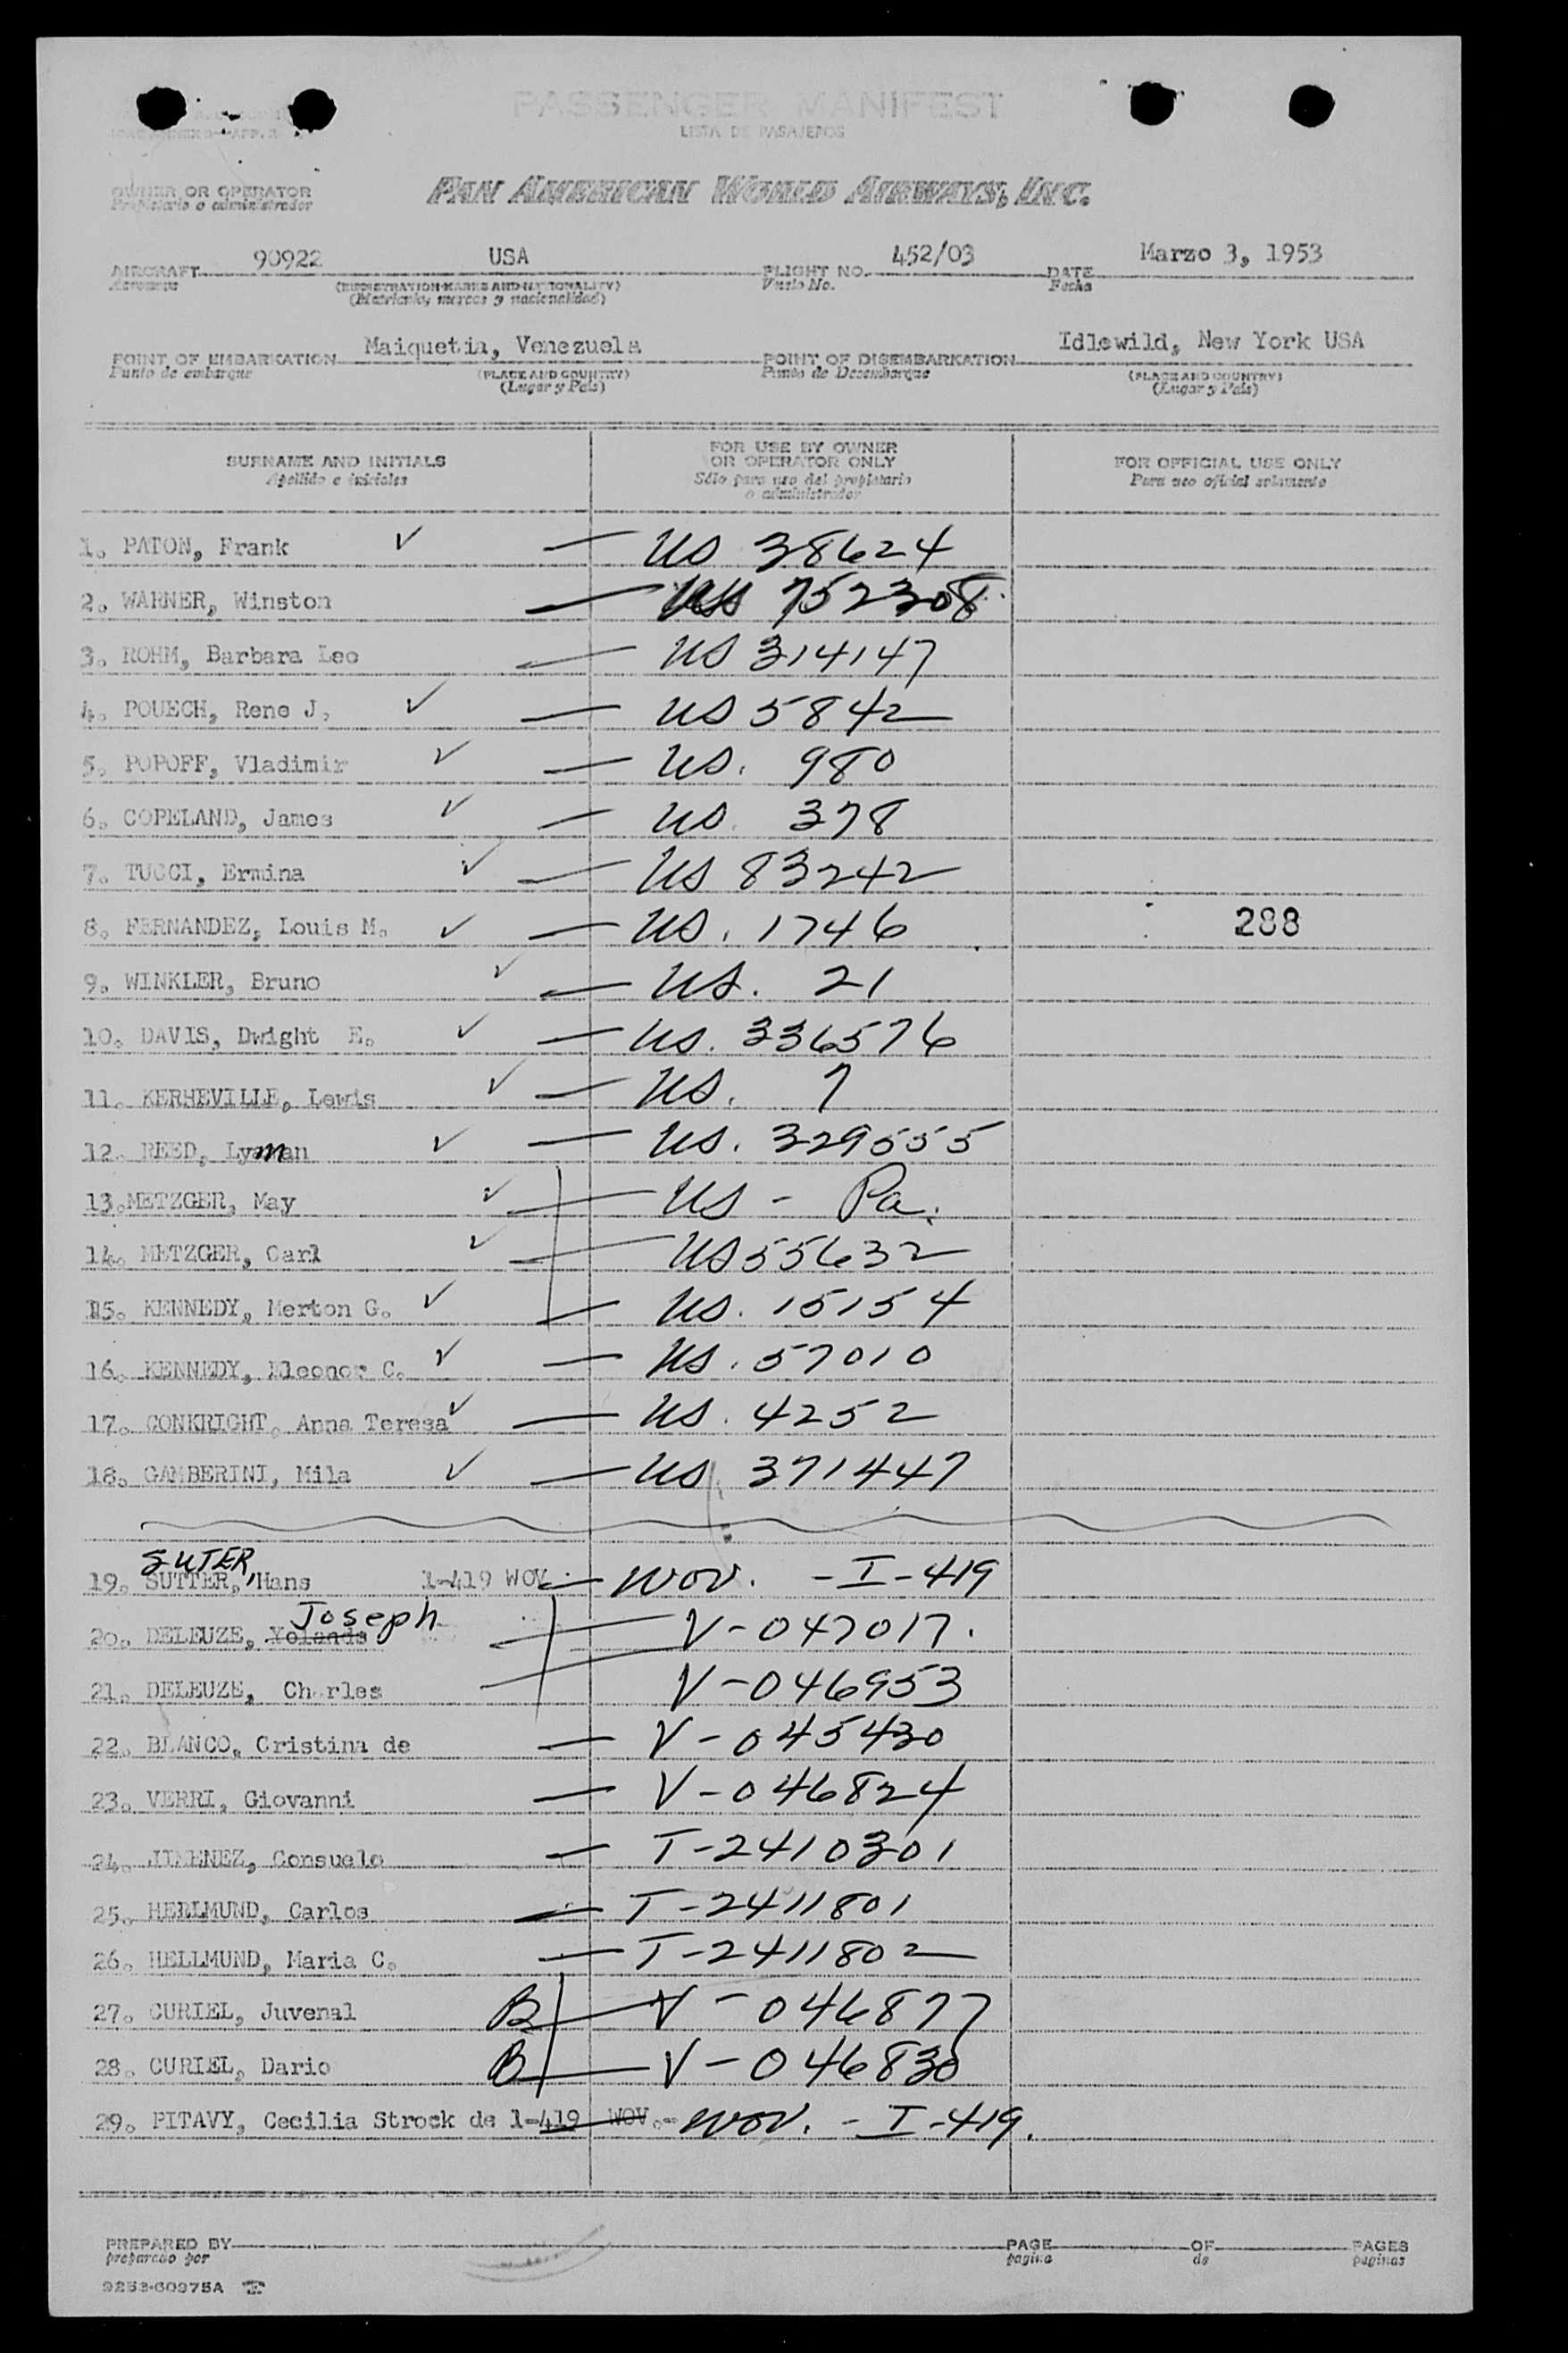 PASSENGER MANIFEST
LISTA DE PASAJEROS
OWNER OR OPERATOR
Propietario o administrador
PAN AMERICAN WORLD AIRWAYS, INC.
AIRCRAFT 90922 USA FLIGHT NO. 452/03 DATE Marzo 3, 1953
Aeronave (REGISTRATION MARKS AND NATIONALITY) Vuelo No. Fecha
(Matricula, marcas y nacionalidad)
POINT OF EMBARKATION Maiquetia, Venezuela POINT OF DISEMBARKATION Idlewild, New York USA
Punto de embarque (PLACE AND COUNTRY) Punto de Desembarque (PLACE AND COUNTRY)
(Lugar y País) (Lugar y País)
SURNAME AND INITIALS
Apellido e iniciales
FOR USE BY OWNER
OR OPERATOR ONLY
Sólo para uso del propietario
o administrador
FOR OFFICIAL USE ONLY
Para uso oficial solamente
1. PATON, Frank ✓ — US 38624
2. WARNER, Winston — US 752308
3. ROHM, Barbara Leo — US 314147
4. POUECH, Rene J. ✓ — US 5842
5. POPOFF, Vladimir ✓ — US. 980
6. COPELAND, James ✓ — US. 378
7. TUCCI, Ermina ✓ — US 83242
8. FERNANDEZ, Louis M. ✓ — US. 1746 288
9. WINKLER, Bruno ✓ — US. 21
10. DAVIS, Dwight E. ✓ — US. 336576
11. KERHEVILLE, Lewis ✓ — US. 7
12. REED, Lyman ✓ — US. 329555
13. METZGER, May ✓ — US - Pa.
14. METZGER, Carl ✓ — US 55632
15. KENNEDY, Merton G. ✓ — US. 15154
16. KENNEDY, Eleonor C. ✓ — US. 57010
17. CONKRIGHT, Anna Teresa ✓ — US. 4252
18. GAMBERINI, Mila ✓ — US. 371447
SUTER,
19. SUTTER, Hans 1-419 WOV — WOV. - I-419
Joseph
20. DELEUZE, Yolanda — V-047017.
21. DELEUZE, Charles — V-046953
22. BLANCO, Cristina de — V-045430
23. VERRI, Giovanni — V-046824
24. JIMENEZ, Consuelo — T-2410301
25. HERLMUND, Carlos — T-2411801
26. HELLMUND, Maria C. — T-2411802
27. CURIEL, Juvenal B — V-046877
28. CURIEL, Dario B — V-046830
29. PITAVY, Cecilia Strock de 1-419 WOV.- WOV. - I-419.
PREPARED BY PAGE OF PAGES
preparado por pagina de paginas
9253-60975A